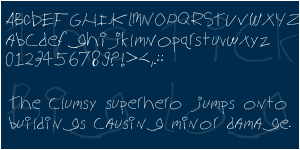 ABCDEFGHIJKLMNOPQRSTUVWXYZ
Abcdefghijklmnopqrstuvwxyz
0123456789?!><,.:
the clumsy superhero jumps onto
buildings causing minor damage.